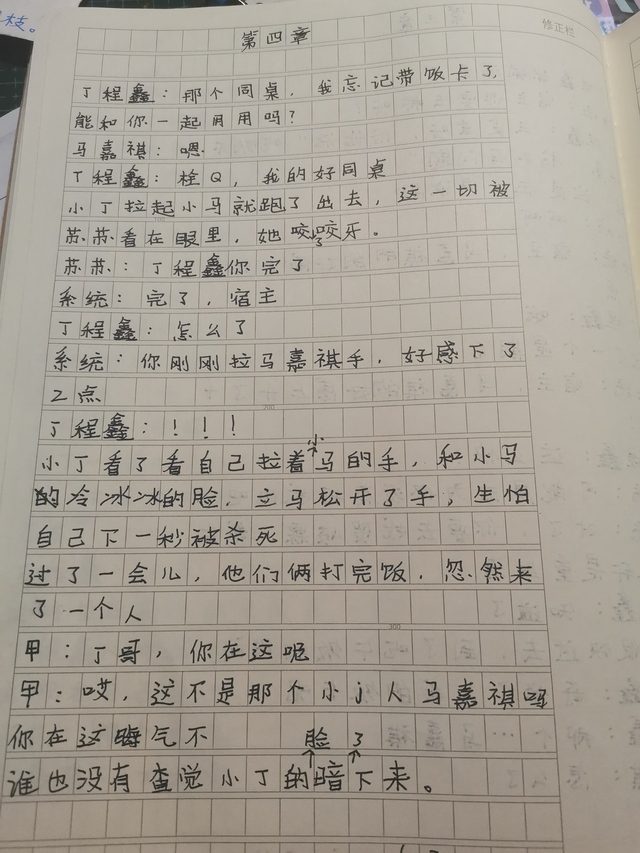 枝。
修正栏
第四章
丁程鑫：那个同桌，我忘记带饭卡了，
能和你一起用用吗？
马嘉祺：嗯
丁程鑫：栓Q，我的好同桌
小丁拉起小马就跑了出去，这一切被
苏苏看在眼里，她咬了咬牙。
苏苏：丁程鑫你完了
系统：完了，宿主
丁程鑫：怎么了
系统：你刚刚拉马嘉祺手，好感下了
2点
200
丁程鑫：！！！
小丁看了看自己拉着小马的手，和小马
的冷冰冰的脸，立马松开了手，生怕
自己下一秒被杀死
过了一会儿，他们俩打完饭，忽然来
了一个人
300
甲：丁哥，你在这呢
甲：哎，这不是那个小j人马嘉祺吗
你在这晦气不
谁也没有查觉小丁的脸暗了下来。